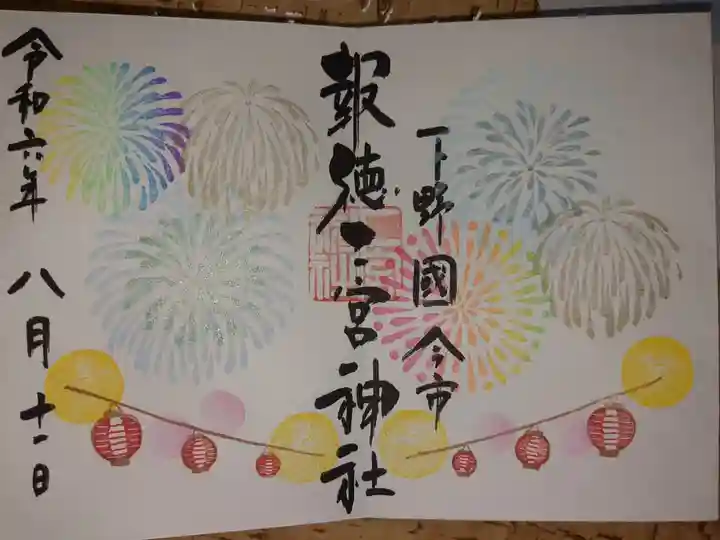 下野國今市
報徳二宮神社
令和六年 八月十一日